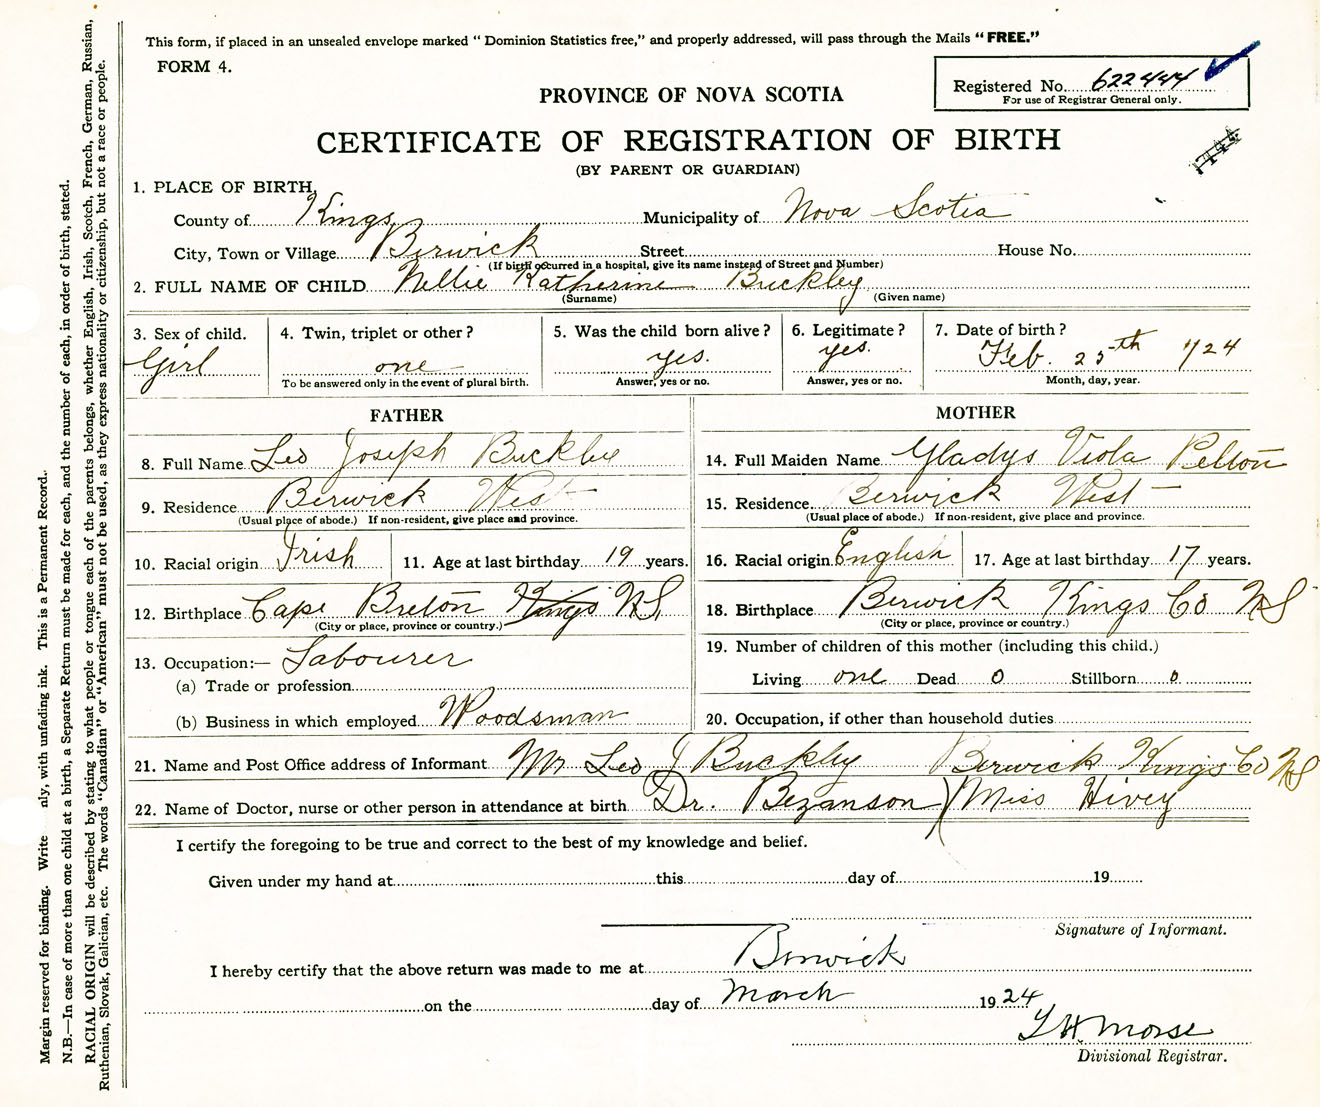 This form, if placed in an unsealed envelope marked "Dominion Statistics free," and properly addressed, will pass through the Mails "FREE."
FORM 4.
Registered No. 622444
For use of Registrar General only.
PROVINCE OF NOVA SCOTIA
CERTIFICATE OF REGISTRATION OF BIRTH
(BY PARENT OR GUARDIAN)
1. PLACE OF BIRTH,
County of Kings Municipality of Nova Scotia
City, Town or Village Berwick Street House No.
(If birth occurred in a hospital, give its name instead of Street and Number)
2. FULL NAME OF CHILD Nellie Katherine Buckley
(Surname) (Given name)
3. Sex of child. 4. Twin, triplet or other? 5. Was the child born alive? 6. Legitimate? 7. Date of birth?
Girl one yes. yes. Feb. 25th 1924
To be answered only in the event of plural birth. Answer, yes or no. Answer, yes or no. Month, day, year.
FATHER
8. Full Name Leo Joseph Bucklee
9. Residence Berwick West
(Usual place of abode.) If non-resident, give place and province.
10. Racial origin Irish 11. Age at last birthday 19 years.
12. Birthplace Cape Breton Kings NS
(City or place, province or country.)
13. Occupation:— Labourer
(a) Trade or profession
(b) Business in which employed Woodsman
MOTHER
14. Full Maiden Name Gladys Viola Pelton
15. Residence Berwick West
(Usual place of abode.) If non-resident, give place and province.
16. Racial origin English 17. Age at last birthday 17 years.
18. Birthplace Berwick Kings Co NS
(City or place, province or country.)
19. Number of children of this mother (including this child.)
Living one Dead 0 Stillborn 0
20. Occupation, if other than household duties
21. Name and Post Office address of Informant Mr Leo J Buckley Berwick Kings Co NS
22. Name of Doctor, nurse or other person in attendance at birth Dr. Bezanson) Miss Hivey
I certify the foregoing to be true and correct to the best of my knowledge and belief.
Given under my hand at this day of 19
Signature of Informant.
I hereby certify that the above return was made to me at Berwick
on the day of March 1924
L H Morse
Divisional Registrar.
Margin reserved for binding. Write nly, with unfading ink. This is a Permanent Record.
N.B.—In case of more than one child at a birth, a Separate Return must be made for each, and the number of each, in order of birth, stated.
RACIAL ORIGIN will be described by stating to what people or tongue each of the parents belongs, whether English, Irish, Scotch, French, German, Russian,
Ruthenian, Slovak, Galician, etc. The words "Canadian" or "American" must not be used, as they express nationality or citizenship, but not a race or people.